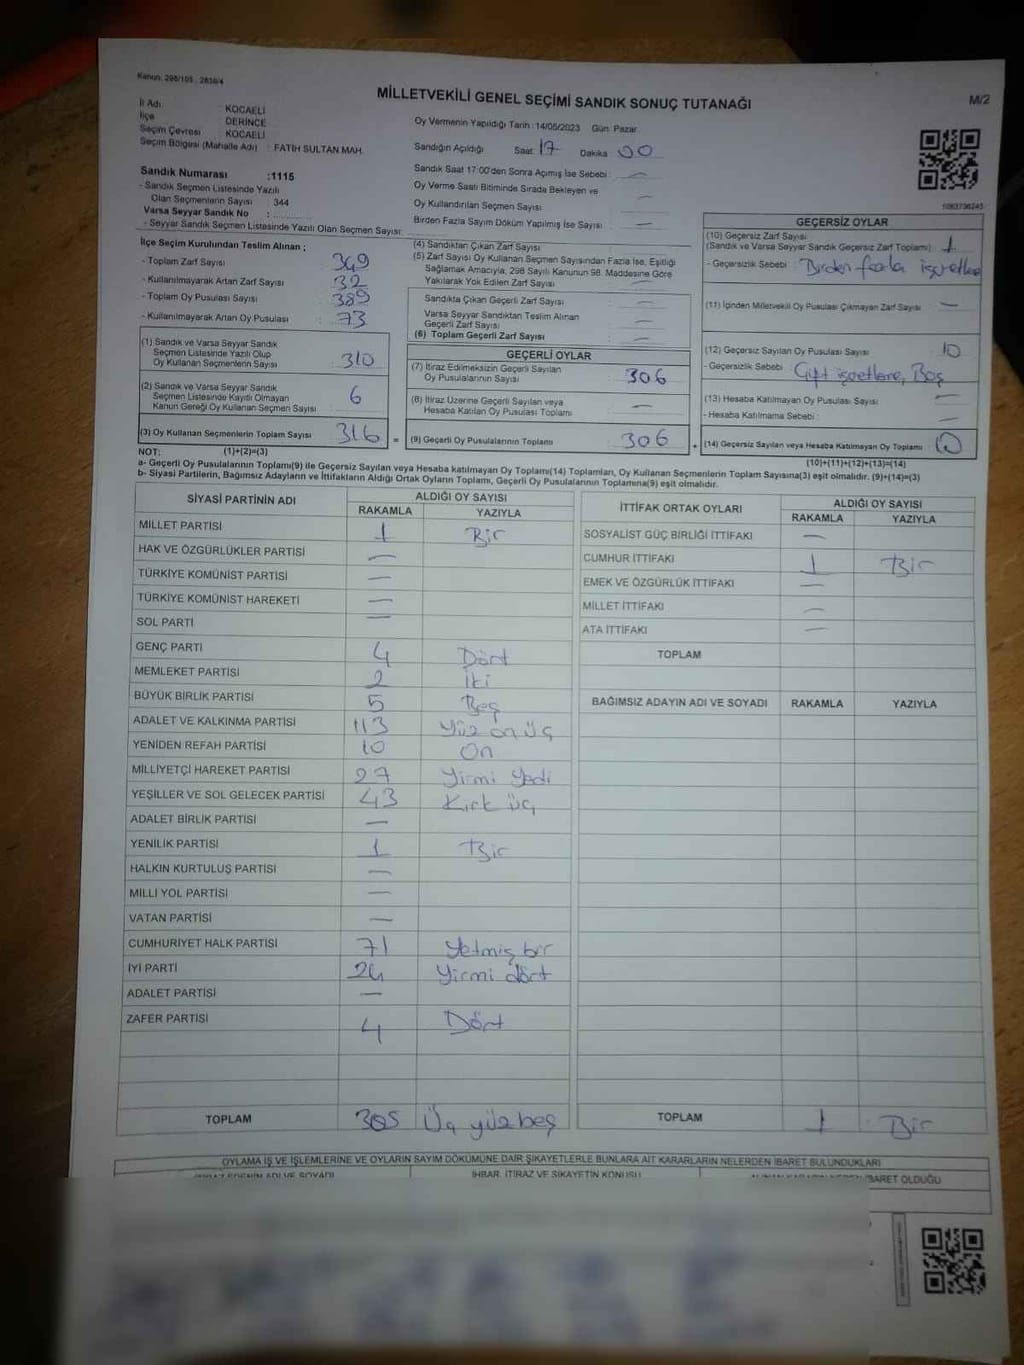 Kanun: 298/105 : 2839/4
MİLLETVEKİLİ GENEL SEÇİMİ SANDIK SONUÇ TUTANAĞI
M/2
İl Adı : KOCAELİ
İlçe : DERİNCE
Seçim Çevresi : KOCAELİ
Seçim Bölgesi (Mahalle Adı) : FATİH SULTAN MAH.
Oy Vermenin Yapıldığı Tarih :14/05/2023 Gün: Pazar
Sandığın Açıldığı Saat: 17 Dakika 00
Sandık Saat 17:00'den Sonra Açmış İse Sebebi : —
Oy Verme Saati Bitiminde Sırada Bekleyen ve
Oy Kullandırılan Seçmen Sayısı —
Birden Fazla Sayım Döküm Yapılmış İse Sayısı : —
1063736245
Sandık Numarası :1115
- Sandık Seçmen Listesinde Yazılı
Olan Seçmenlerin Sayısı : 344
Varsa Seyyar Sandık No :
- Seyyar Sandık Seçmen Listesinde Yazılı Olan Seçmen Sayısı:
İlçe Seçim Kurulundan Teslim Alınan ;
- Toplam Zarf Sayısı : 349
- Kullanılmayarak Artan Zarf Sayısı : 32
- Toplam Oy Pusulası Sayısı : 389
- Kullanılmayarak Artan Oy Pusulası : 73
(1) Sandık ve Varsa Seyyar Sandık
Seçmen Listesinde Yazılı Olup
Oy Kullanan Seçmenlerin Sayısı : 310
(2) Sandık ve Varsa Seyyar Sandık
Seçmen Listesinde Kayıtlı Olmayan
Kanun Gereği Oy Kullanan Seçmen Sayısı : 6
(3) Oy Kullanan Seçmenlerin Toplam Sayısı : 316 =
(4) Sandıktan Çıkan Zarf Sayısı : —
(5) Zarf Sayısı Oy Kullanan Seçmen Sayısından Fazla İse, Eşitliği
Sağlamak Amacıyla, 298 Sayılı Kanunun 98. Maddesine Göre
Yakılarak Yok Edilen Zarf Sayısı : —
Sandıkta Çıkan Geçerli Zarf Sayısı : —
Varsa Seyyar Sandıktan Teslim Alınan
Geçerli Zarf Sayısı : —
(6) Toplam Geçerli Zarf Sayısı : —
GEÇERLİ OYLAR
(7) İtiraz Edilmeksizin Geçerli Sayılan
Oy Pusulalarının Sayısı : 306
(8) İtiraz Üzerine Geçerli Sayılan veya
Hesaba Katılan Oy Pusulası Toplamı : —
(9) Geçerli Oy Pusulalarının Toplamı : 306 +
GEÇERSİZ OYLAR
(10) Geçersiz Zarf Sayısı
(Sandık ve Varsa Seyyar Sandık Geçersiz Zarf Toplamı) : 1
- Geçersizlik Sebebi : Birden fazla
(11) İçinden Milletvekili Oy Pusulası Çıkmayan Zarf Sayısı : —
(12) Geçersiz Sayılan Oy Pusulası Sayısı : 10
- Geçersizlik Sebebi : Boş
(13) Hesaba Katılmayan Oy Pusulası Sayısı : —
- Hesaba Katılmama Sebebi : —
(14) Geçersiz Sayılan veya Hesaba Katılmayan Oy Toplamı : 10
NOT: (1)+(2)=(3) (10)+(11)+(12)+(13)=(14)
a- Geçerli Oy Pusulalarının Toplamı(9) ile Geçersiz Sayılan veya Hesaba katılmayan Oy Toplamı(14) Toplamları, Oy Kullanan Seçmenlerin Toplam Sayısına(3) eşit olmalıdır. (9)+(14)=(3)
b- Siyasi Partilerin, Bağımsız Adayların ve İttifakların Aldığı Ortak Oyların Toplamı, Geçerli Oy Pusulalarının Toplamına(9) eşit olmalıdır.
SİYASİ PARTİNİN ADI ALDIĞI OY SAYISI
RAKAMLA YAZIYLA
MİLLET PARTİSİ 1 Bir
HAK VE ÖZGÜRLÜKLER PARTİSİ —
TÜRKİYE KOMÜNİST PARTİSİ —
TÜRKİYE KOMÜNİST HAREKETİ —
SOL PARTİ —
GENÇ PARTİ 4 Dört
MEMLEKET PARTİSİ 2 İki
BÜYÜK BİRLİK PARTİSİ 5 Beş
ADALET VE KALKINMA PARTİSİ 113 Yüz on üç
YENİDEN REFAH PARTİSİ 10 On
MİLLİYETÇİ HAREKET PARTİSİ 27 Yirmi yedi
YEŞİLLER VE SOL GELECEK PARTİSİ 43 Kırk üç
ADALET BİRLİK PARTİSİ —
YENİLİK PARTİSİ 1 Bir
HALKIN KURTULUŞ PARTİSİ —
MİLLİ YOL PARTİSİ —
VATAN PARTİSİ —
CUMHURİYET HALK PARTİSİ 71 Yetmiş bir
İYİ PARTİ 24 Yirmi dört
ADALET PARTİSİ —
ZAFER PARTİSİ 4 Dört
TOPLAM 305 Üç yüz beş
İTTİFAK ORTAK OYLARI ALDIĞI OY SAYISI
RAKAMLA YAZIYLA
SOSYALİST GÜÇ BİRLİĞİ İTTİFAKI —
CUMHUR İTTİFAKI 1 Bir
EMEK VE ÖZGÜRLÜK İTTİFAKI —
MİLLET İTTİFAKI —
ATA İTTİFAKI —
TOPLAM
BAĞIMSIZ ADAYIN ADI VE SOYADI RAKAMLA YAZIYLA
TOPLAM 1 Bir
OYLAMA İŞ VE İŞLEMLERİNE VE OYLARIN SAYIM DÖKÜMÜNE DAİR ŞİKAYETLERLE BUNLARA AİT KARARLARIN NELERDEN İBARET BULUNDUKLARI
İHBAR, İTİRAZ VE ŞİKAYETİN KONUSU İBARET OLDUĞU